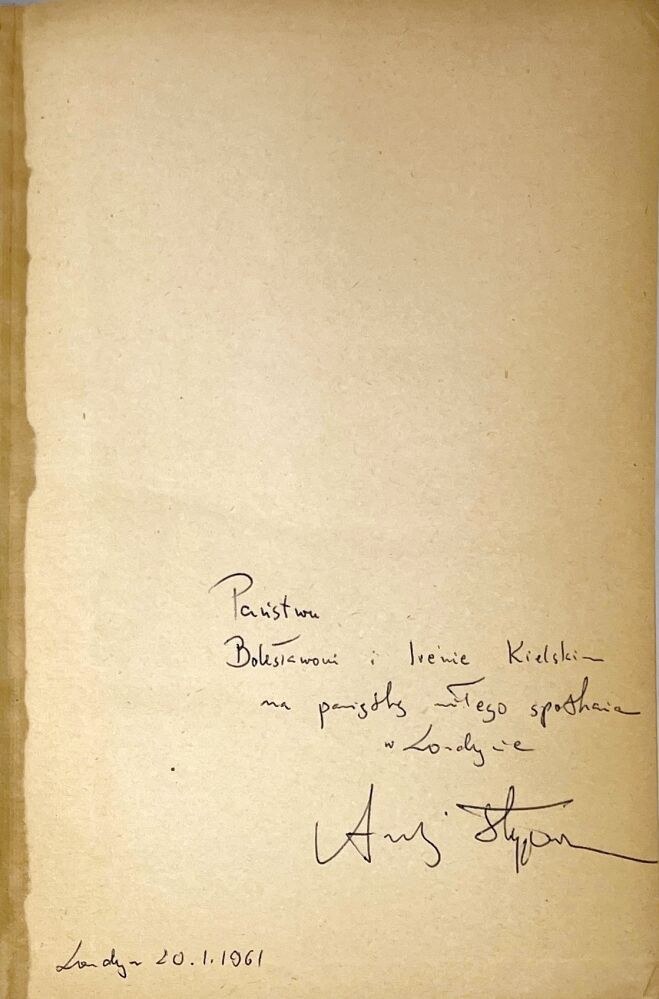 Państwu
Bolesławowi i Irenie Kielskim
na pamiątkę miłego spotkania
w Londynie
Londyn 20.1.1961